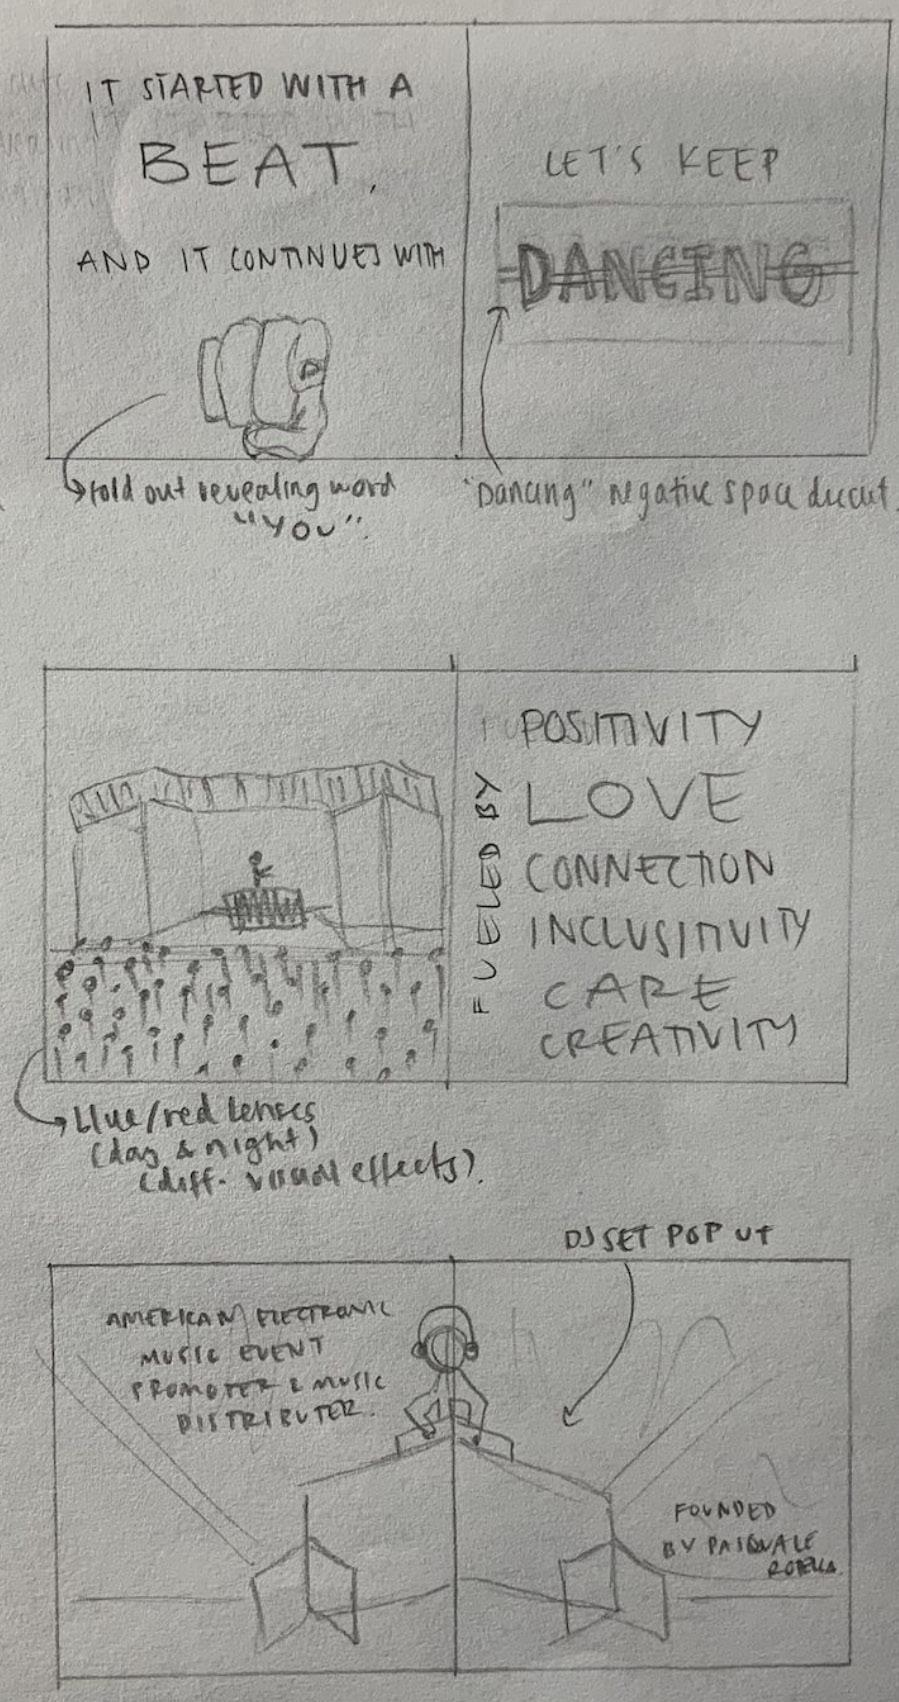 IT STARTED WITH A
BEAT.
AND IT CONTINUES WITH
fold out revealing word
"YOU".
LET'S KEEP
DANCING
"Dancing" negative space diecut
FUELED BY
POSITIVITY
LOVE
CONNECTION
INCLUSITIVITY
CARE
CREATIVITY
blue/red lenses
(day & night)
(diff. visual effects).
DJ SET POP UP
AMERICAN ELECTRONIC
MUSIC EVENT
PROMOTER & MUSIC
DISTRIBUTER.
FOUNDED
BY PASQUALE
ROTELLA.